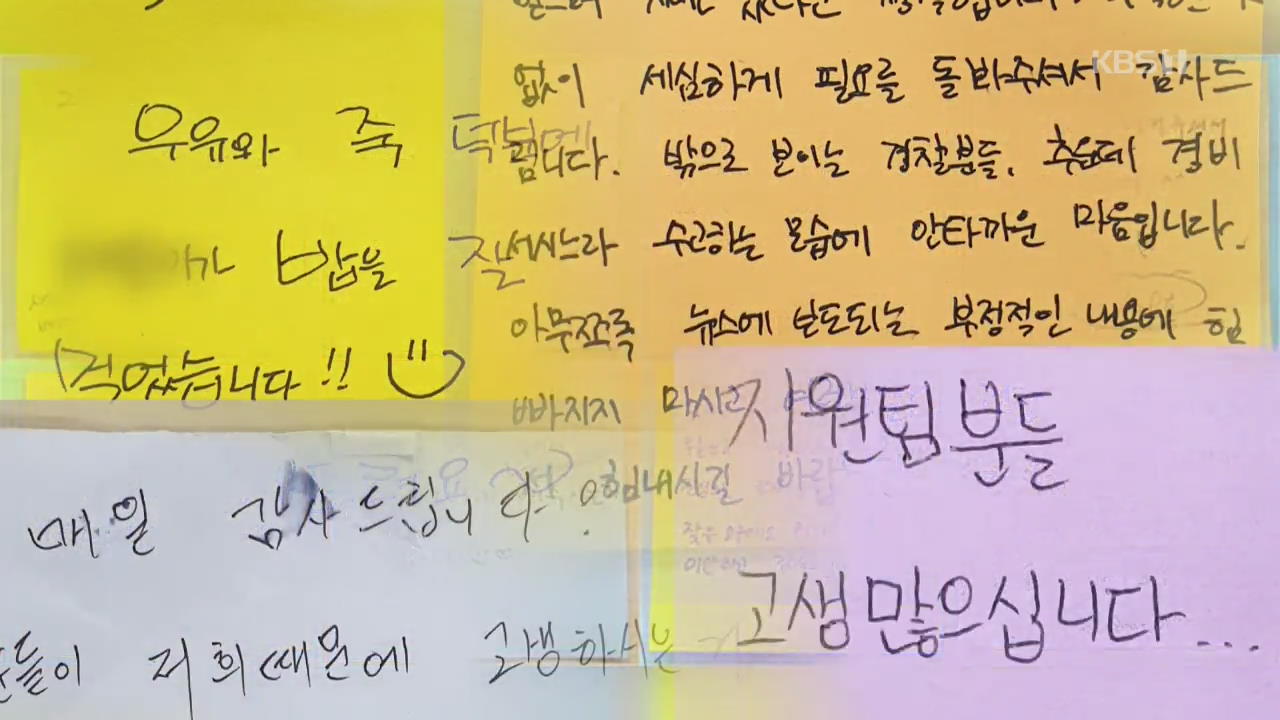 KBS
우유와 죽 덕분에
가 밥을 잘
먹었습니다!!
없이 세심하게 필요를 돌봐주셔서 감사드
립니다. 밖으로 보이는 경찰분들, 추운데 경비
서시느라 수고하는 모습에 안타까운 마음입니다.
아무쪼록 뉴스에 보도되는 부정적인 내용에 힘
빠지지 마시고
힘내시길 바랍
매일 감사드립니다.
분들이 저희때문에 고생하시는
지원팀분들
고생많으십니다...